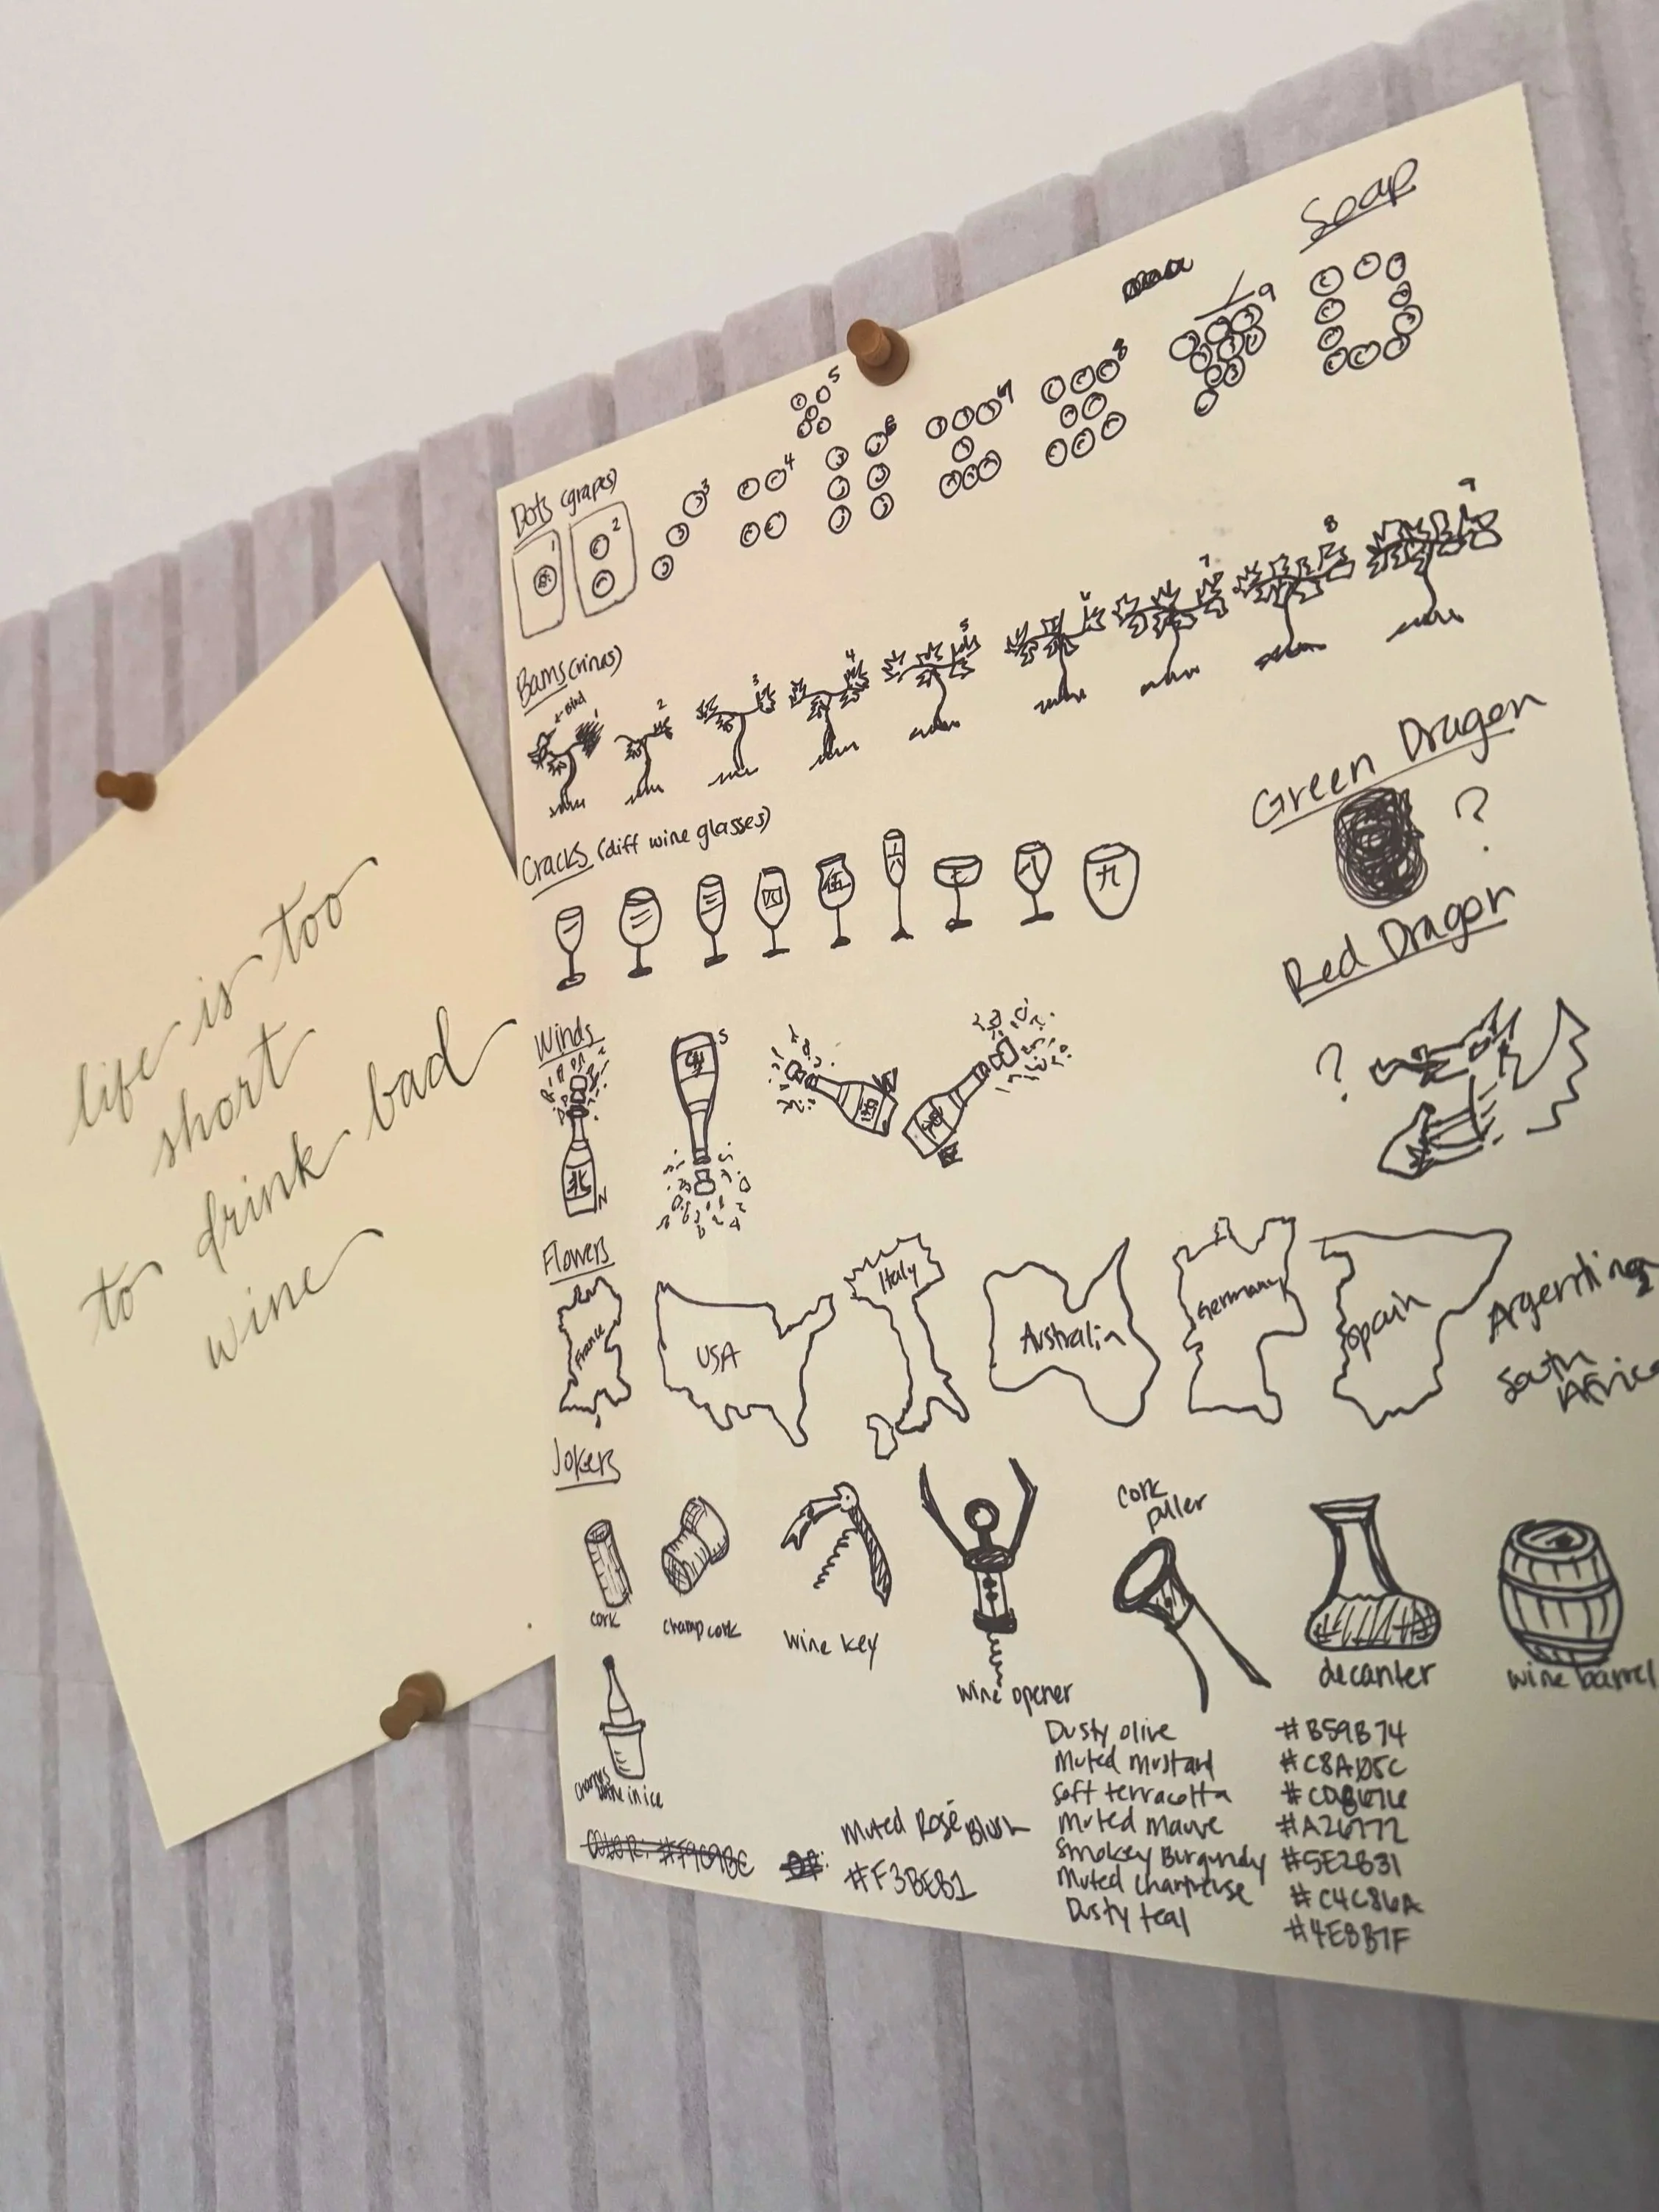 life is too
short
to drink bad
wine
Soap
Dots (grapes)
1 2 3 4 5 6 7 8 9
Bams (vines)
← Bird
1 2 3 4 5 6 7 8 9
Cracks (diff wine glasses)
一 二 三 四 伍 六 七 八 九
Green Dragon
?
Red Dragon
?
Winds
北 N
S
Flowers
France
USA
Italy
Australia
Germany
Spain
Argentina
South
Africa
Jokers
cork
champ cork
wine key
wine opener
cork
puller
decanter
wine barrel
wine in ice
COLOR: #F9C9BC
Muted Rosé Blush
#F3BEB1
Dusty olive #B59B74
Muted mustard #C8A05C
Soft terracotta
Muted mauve #A26772
Smokey Burgundy #5E2B31
Muted chartreuse #C4C86A
Dusty teal #4E8B7F